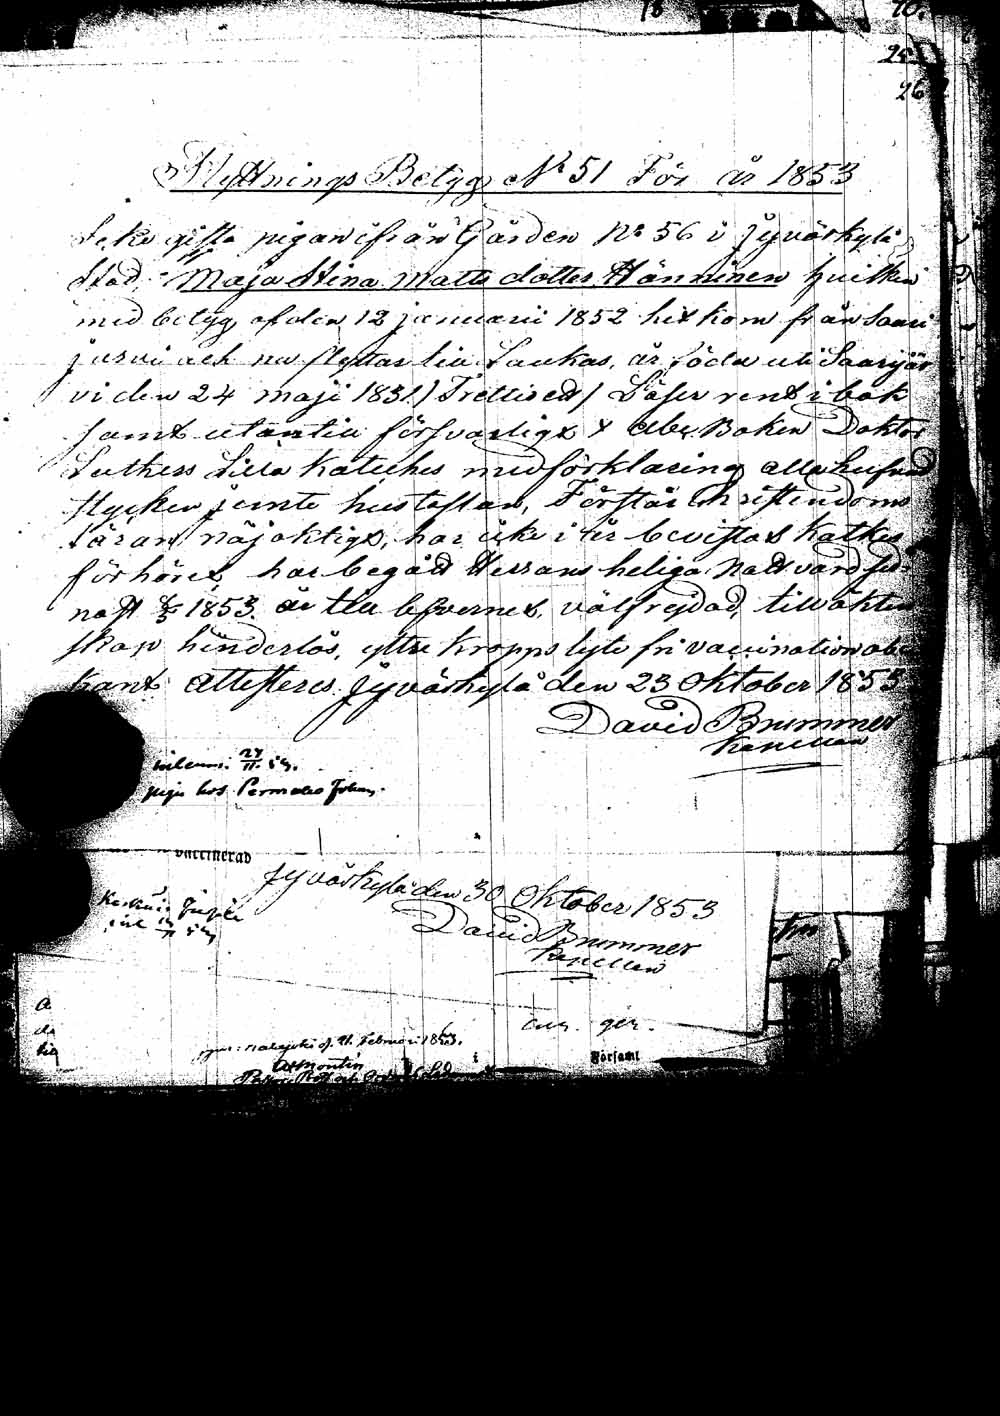 18
70.
25
26
Flyttnings Betyg No 51 För år 1853
Icke gifta pigan ifrån Gården No 56 i Jyväskylä
Stad Maja Stina Matts dotter Hänninen hvilken
med betyg af den 12 januarii 1852 hitkom från Saari
järvi och nu flyttar till Laukas, är född uti Saarijär
vi den 24 maji 1831 / Trettioett / Läser rent i bok
samt utantill försvarligt Abc Boken Doktor
Luthers Lilla Kateches med förklaring alla hufvud
stycken jemte hustaflan, Förstår Christendoms
läran nöjaktigt, har icke i år bevistat Katkes
förhöret, har begått Herrans heliga Nattvard sed
nast 1853 är till lefvernet välfrejdad, till äkten
skap hinderlös, yttre kropps lyte fri vaccination obe
kant attesteres Jyväskylä den 23 Oktober 1853
David Brummer
Kapellan
27/11 53.
piga hos Johan
vaccinerad
Jyväskylä den 30 Oktober 1853
David Brummer
Kapellan
11 53
cur. ger.
d. 21. Februari 1853.
Församl